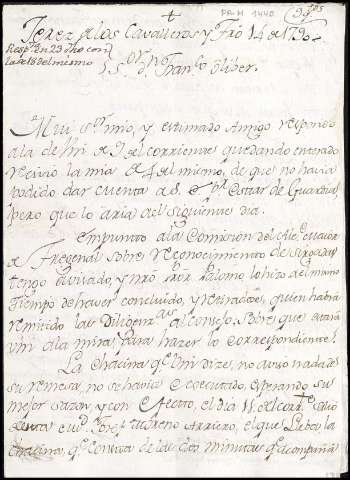 PRM 1440
Jerez de los Cavalleros y Fró 14 de 1790
Resp. en 23 dho con
la de 18 del mismo
Sor. Dn. Franco.
Mui Sor. mio, y estimado Amigo respondo
a la de Vm de del corriente quedando enterado
recivio la mia de 4 del mismo, de que no havia
podido dar cuenta a S. E. pr. estar de Guardia
pero que lo aria del siguiente dia.
Em punto a la Comision del
de Fregenal sobre reconocimiento de
tengo avisado, y nro. Palomo lo hizo al mismo
tiempo de haver concluido, y retiradose, quien habra
remitido las Diligas. al Consejo, sobre que estará
Vm a la mira, para hazer lo correspondiente.
La Chacina qe. Vm dize, no aviso nada de
su remesa, no se havia executado, esperando su
mejor sazon, y con efecto, el dia 11 del corrte. salió
de esta ciud. Moreno Arriero, el que lleba la
chacina, qe. consta de las dos minutas qe. acompaña